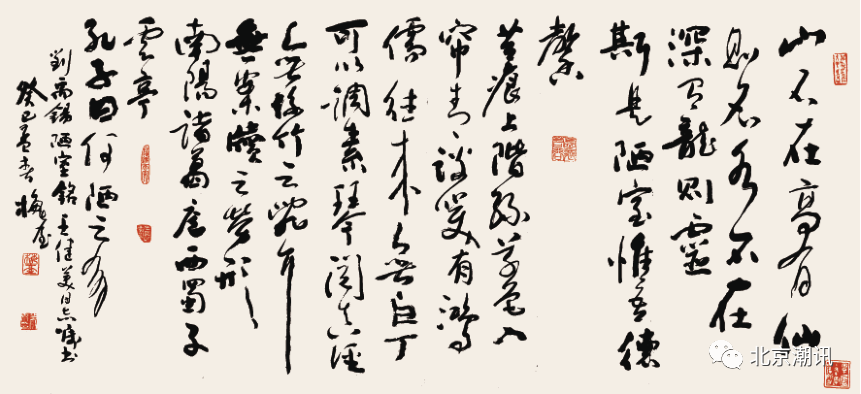 山不在高有仙
则名水不在
深有龍则靈
斯是陋室惟吾德
馨
苔痕上階绿草色入
帘青談笑有鴻
儒往来无白丁
可以调素琴阅金经
无丝竹之乱耳
無案牍之劳形
南陽諸葛庐西蜀子
云亭
孔子曰何陋之有
劉禹锡陋室銘 王佳美同志 书
癸巳孟春
北京潮讯